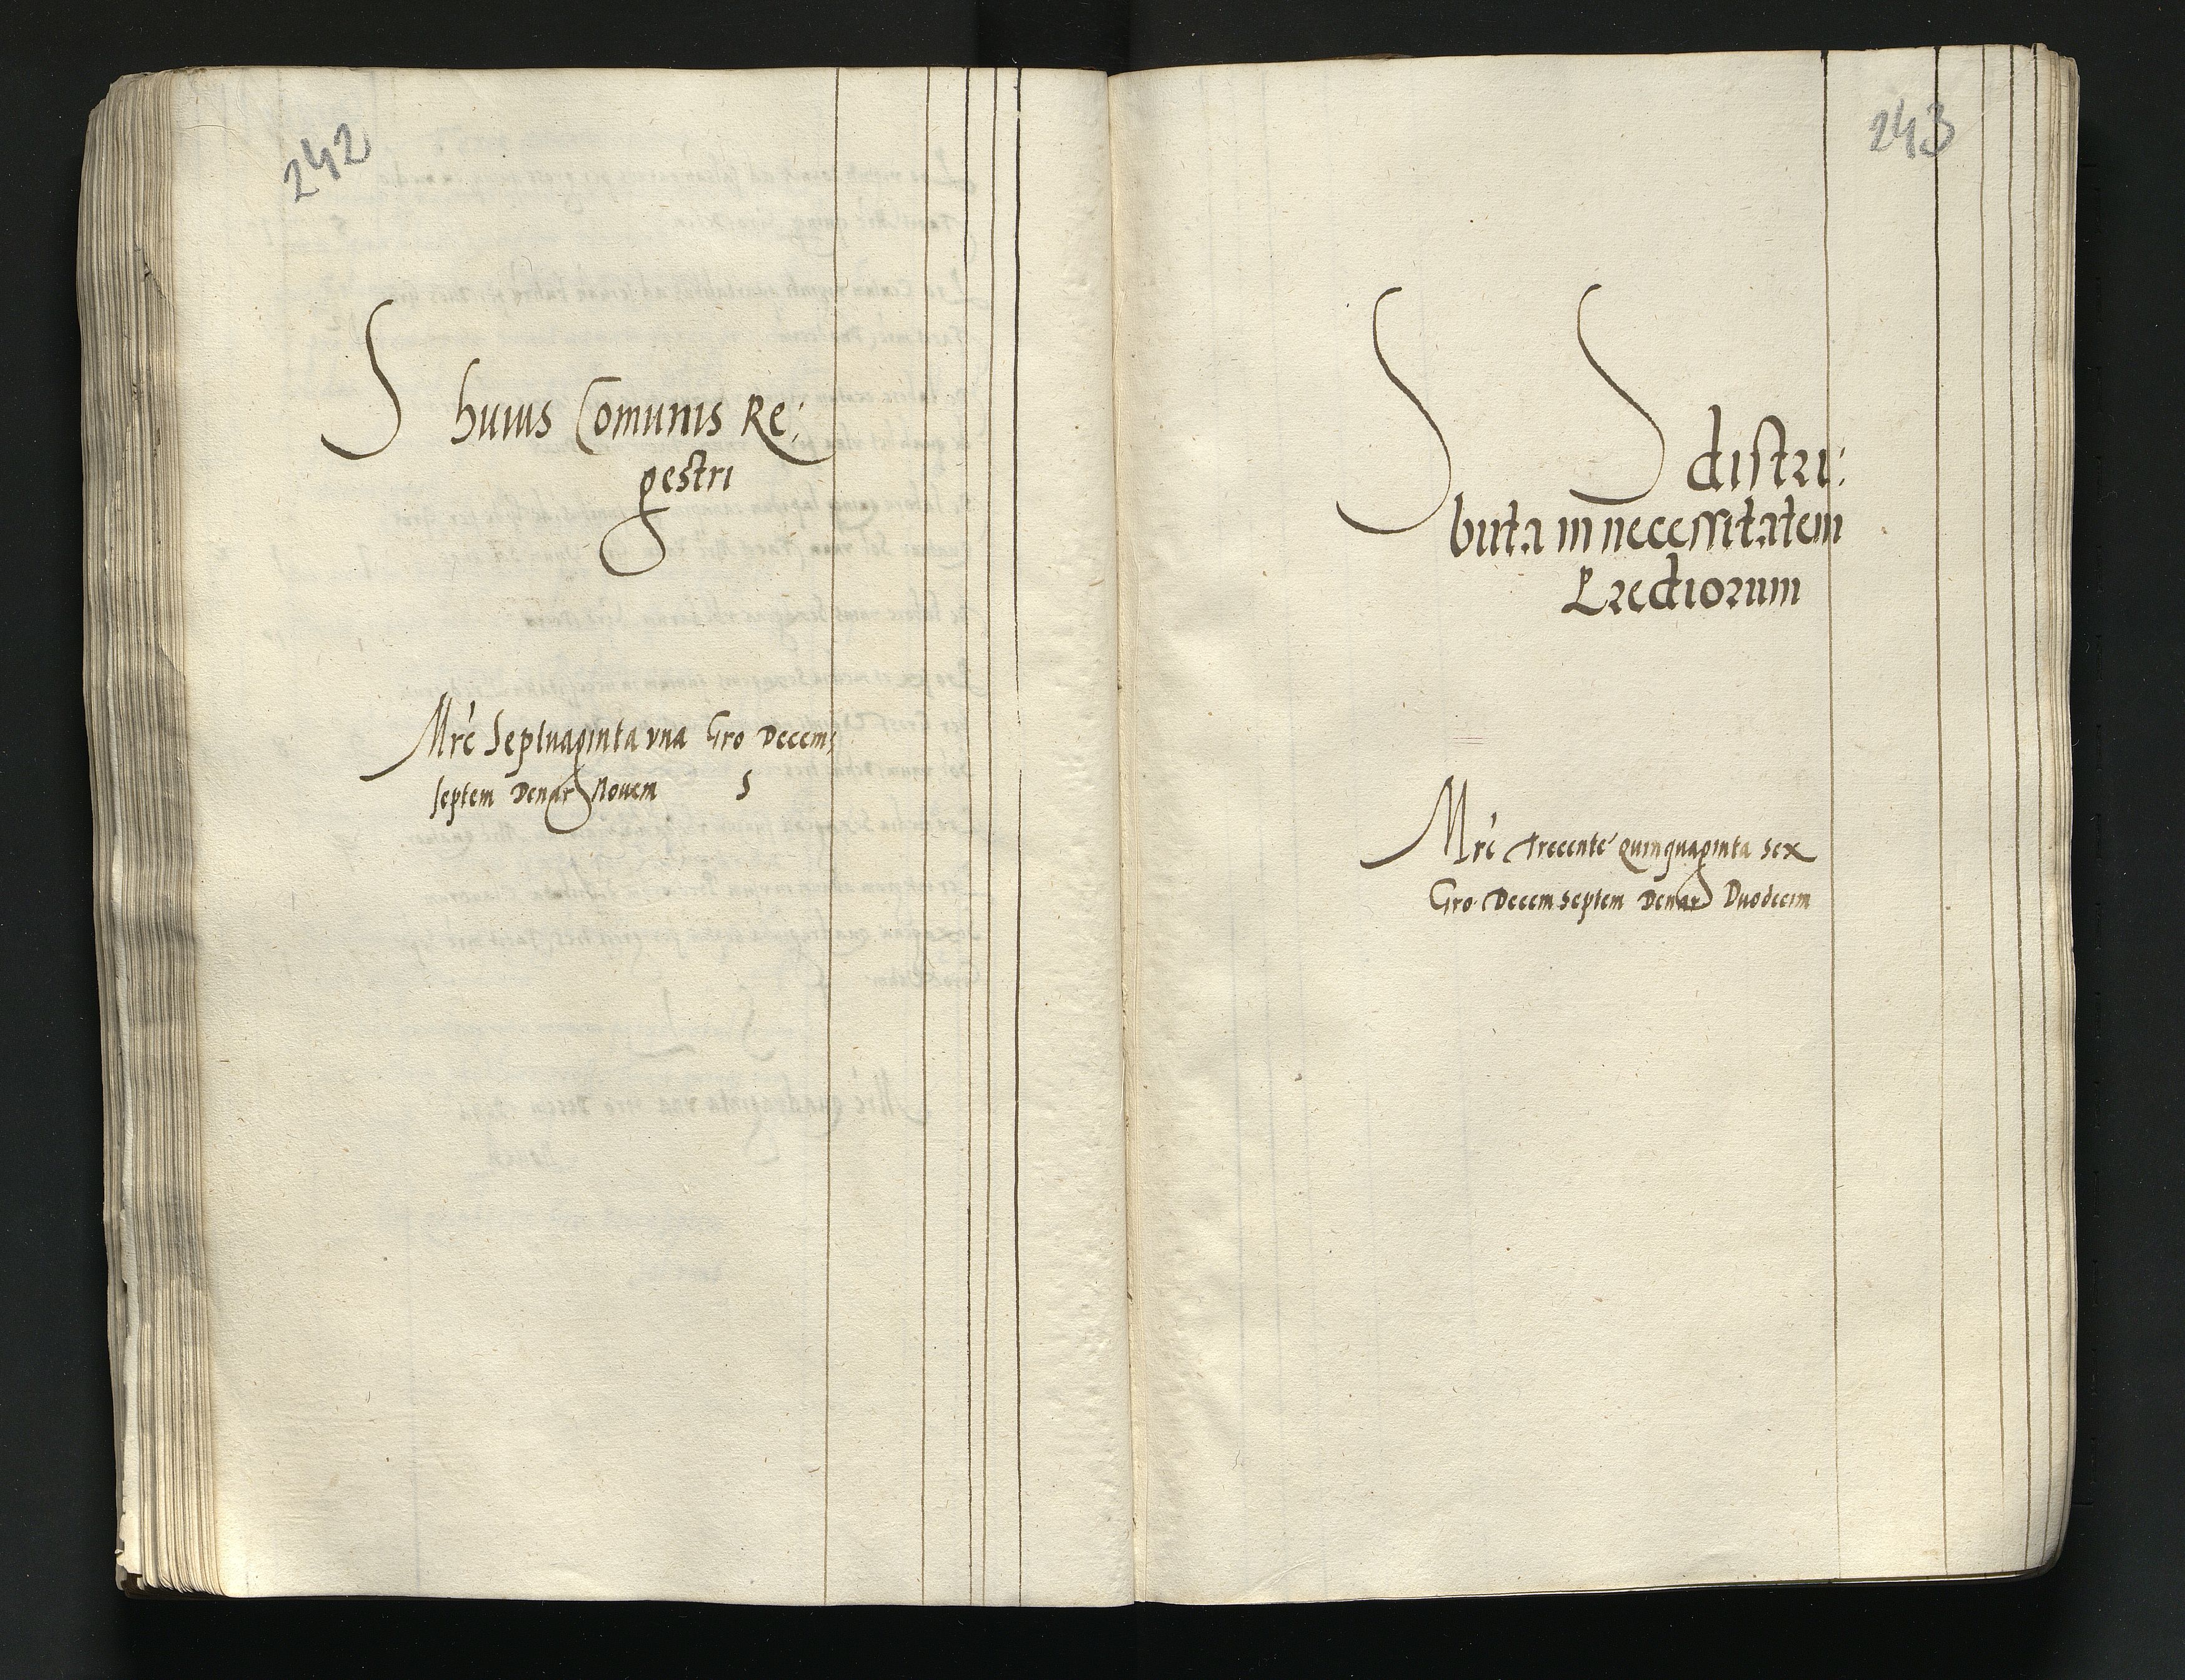 242
S huius Comunis Re:
gestri
Mrc Septuaginta vna Gro Decem;
septem Denar Nouem S
243
S S distri:
buta in necessitatem
Prediorum
Mrc Trecente Quinquaginta sex
Gro Decem septem Denar Duodecim